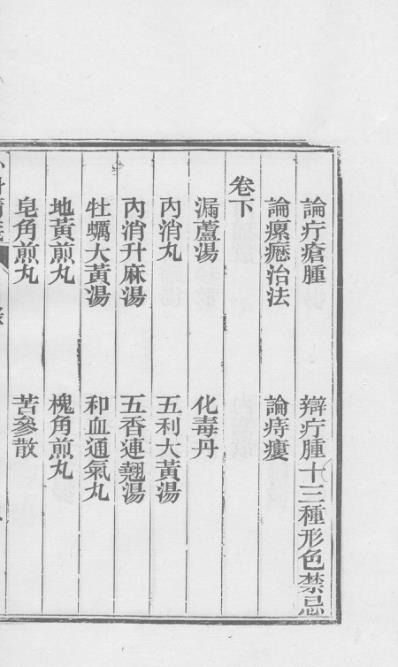 論疔瘡腫　辯疔腫十三種形色禁忌
論瘰癧治法　論痔瘻
卷下
漏蘆湯　化毒丹
內消丸　五利大黃湯
內消升麻湯　五香連翹湯
牡蠣大黃湯　和血通氣丸
地黃煎丸　槐角煎丸
皂角煎丸　苦參散